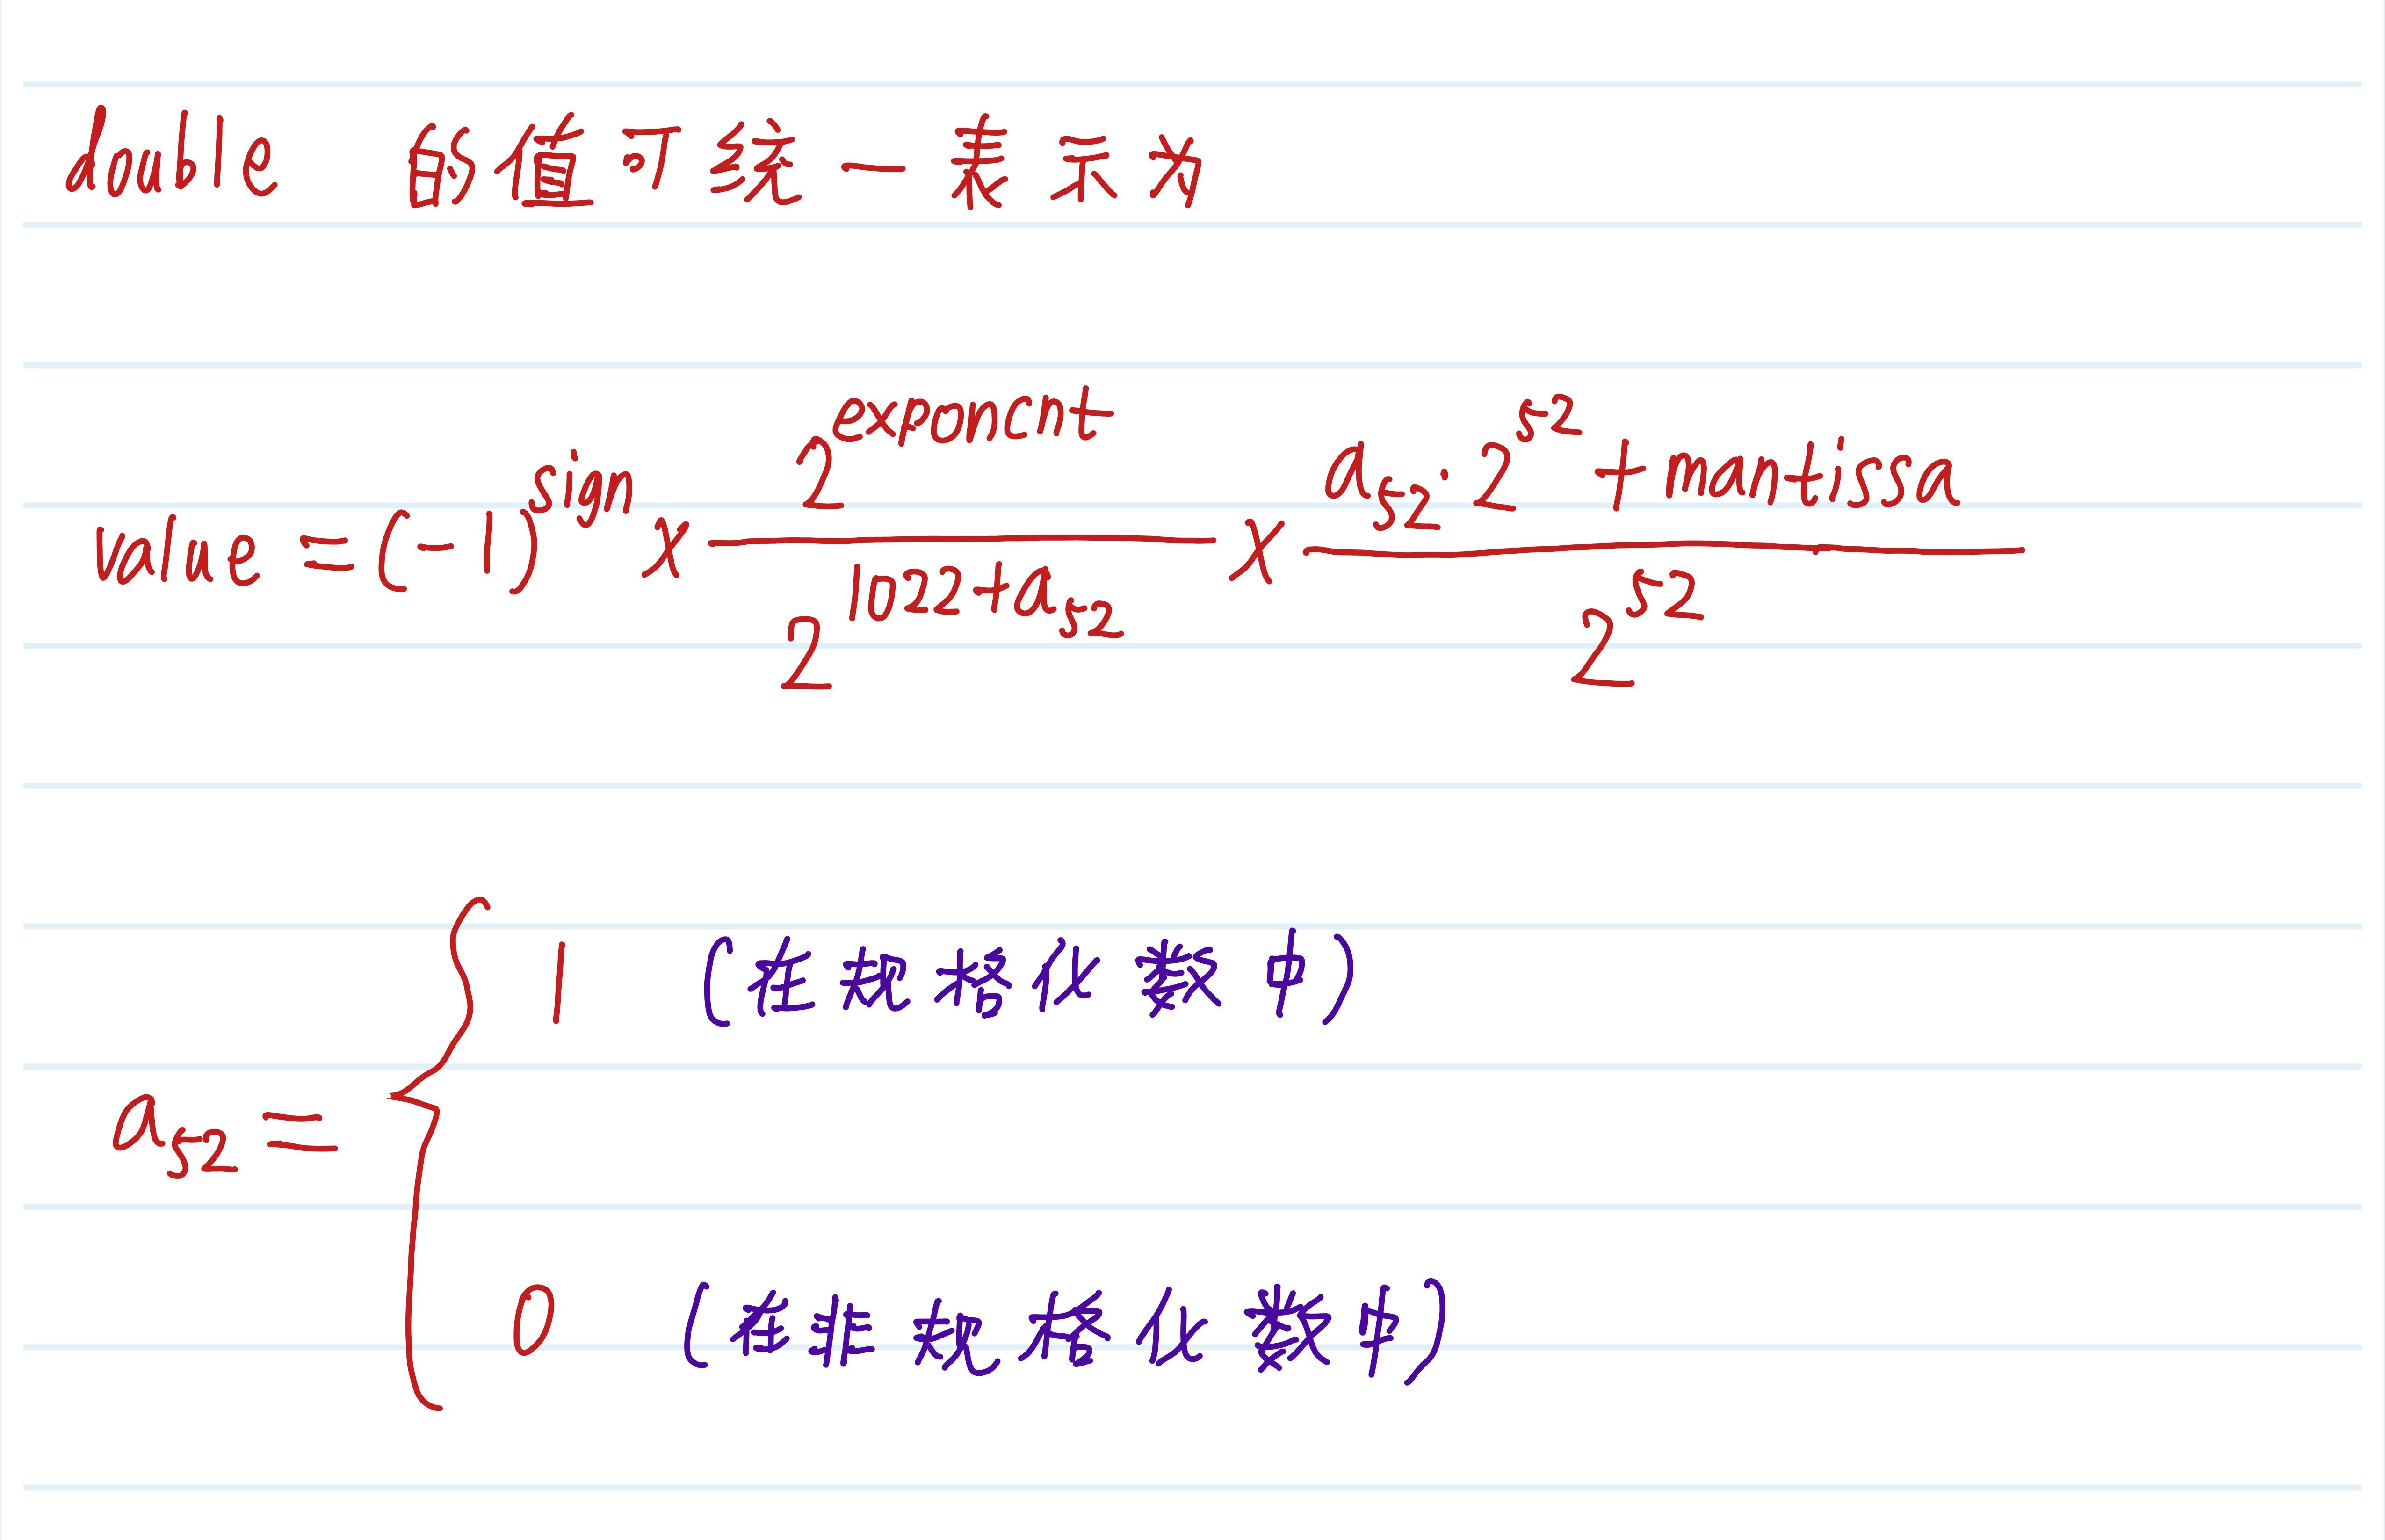 double 的值可统一表示为
value = (-1)^sign × 2^exponent / 2^(1022+a_52) × (a_52 · 2^52 + mantissa) / 2^52
a_52 = { 1 (在规格化数中)
0 (在非规格化数中)